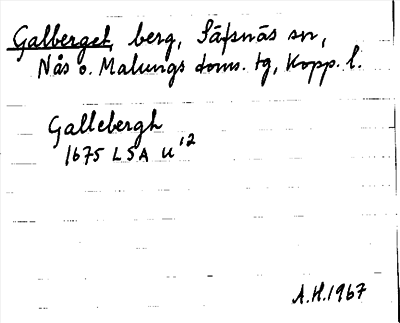 Galberget, berg, Säfsnäs sn,
Nås o. Malungs doms. tg, Kopp. l.
Gallebergh
1675 LSA U¹²
A.H. 1967